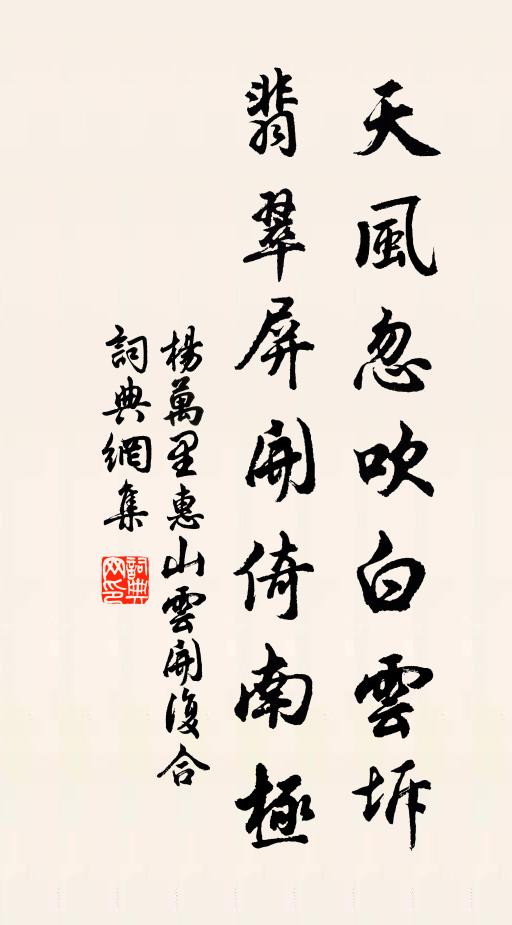 天風忽吹白雲坼
翡翠屏開倚南極
楊萬里惠山雲開復合
詞典網集
詞典网印